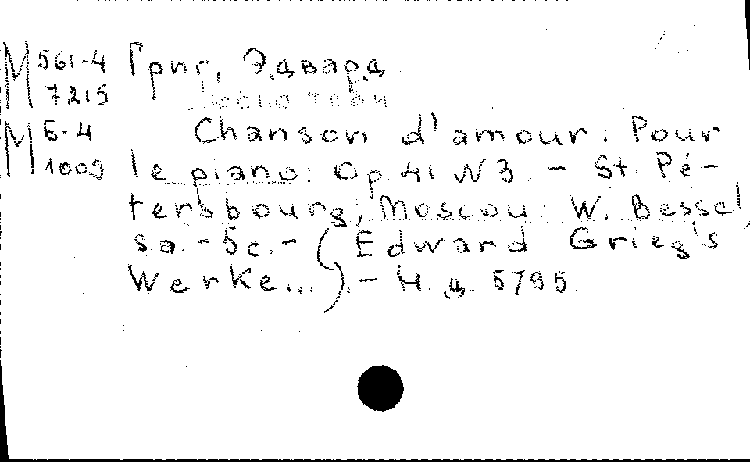 М 561-4 Григ, Эдвард
7215
М Б-4 Chanson d'amour. Pour
1009 le piano: Op. 41 N 3. - St. Pé-
tersbourg; Moscou: W. Bessel,
sa. - 5c. - (Edward Grieg's
Werke...). - Н. д. 5795